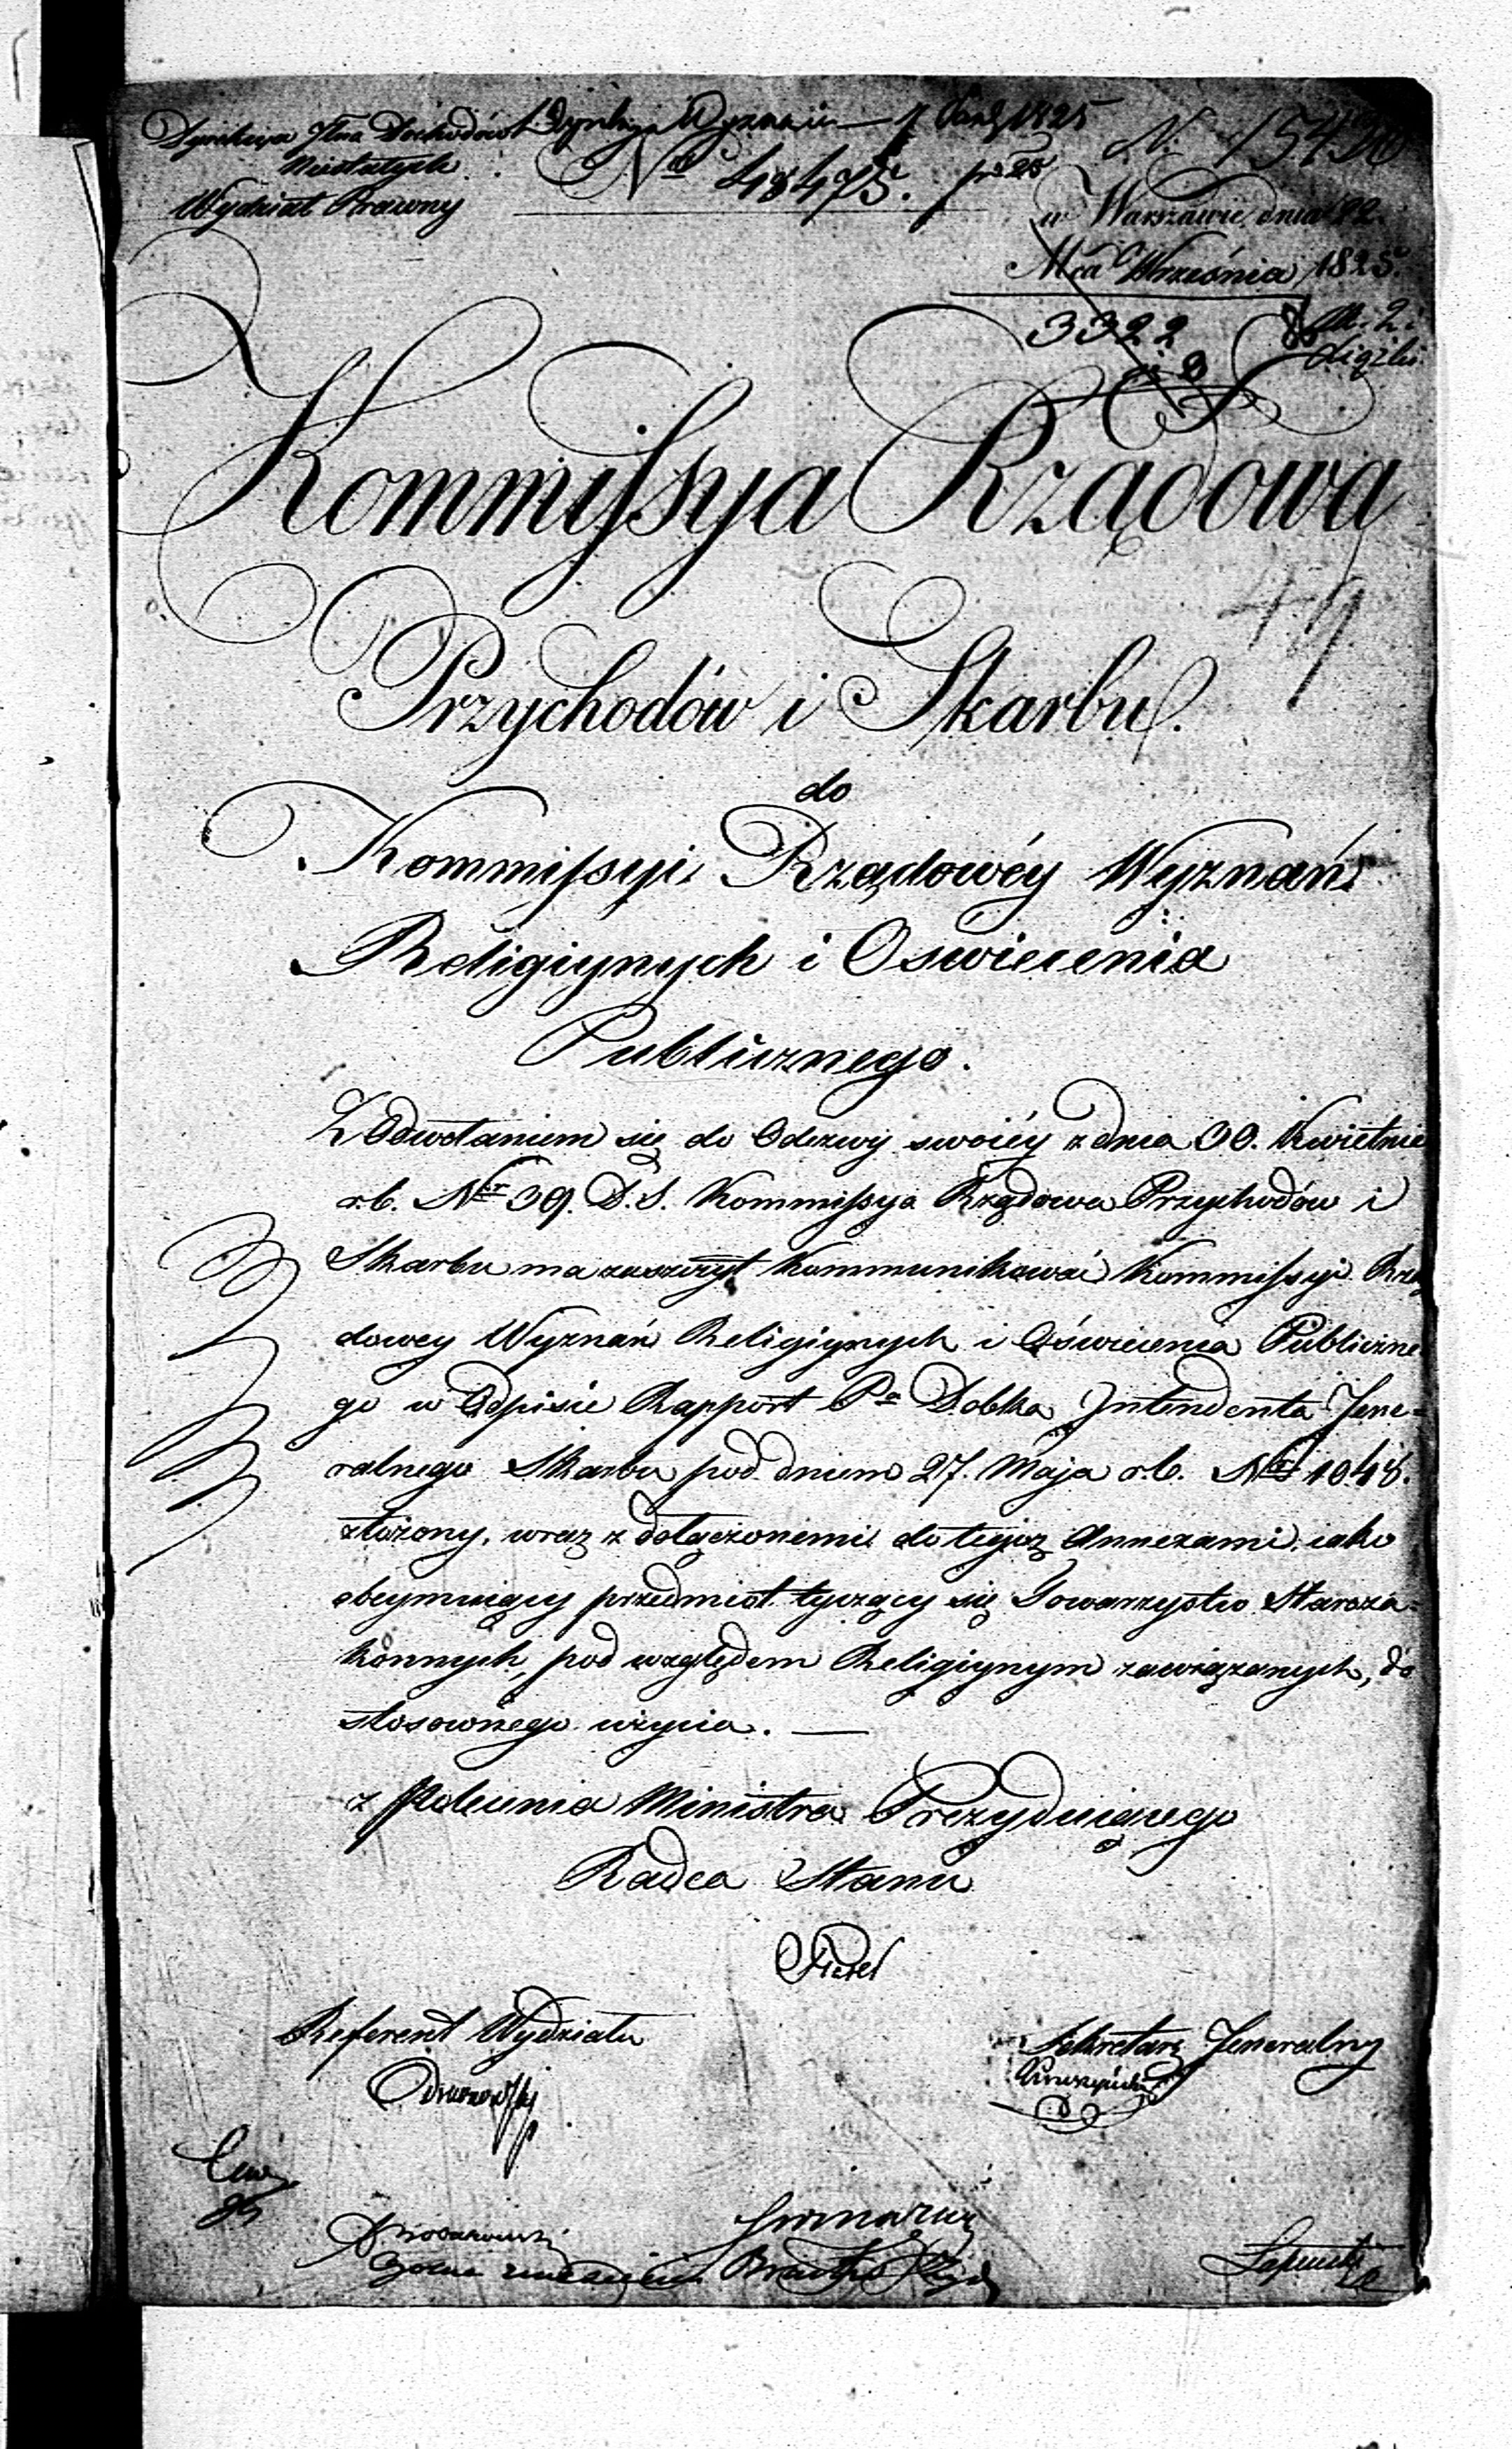 Dyrekcya Jlna Dochodów
Niestałych
Wydział Prawny
Nro 48475.
N. 15420
w Warszawie dnia 22.
Mca Września 1825.
3322
Kommissya Rządowa
Przychodów i Skarbu.
do
Kommissyi Rządowéy Wyznań
Religiynych i Oswiecenia
Publicznego.
Z Odwołaniem się do Odezwy swoiéy z dnia 30. Kwietnia
r.b. Nr 39. D.S. Kommissya Rządowa Przychodów i
Skarbu ma zaszczyt kommunikować Kommissyi Rzą
dowey Wyznań Religiynych i Oświecenia Publiczne
go w Odpisie Rapport Pa Dobka Intendenta Jene-
ralnego Skarbu pod dniem 27. Maja r.b. Nro 1048.
złożony, wraz z dołączonemi do tegoż Annexami, iako
obeymuiący przedmiot tyczący się Towarzystw Staroza-
konnych, pod względem Religiynym zawiązanych, do
stosownego użycia. —
z polecenia Ministra Prezyduiącego
Radca Stanu
Referent Wydziału
Sekretarz Jeneralny